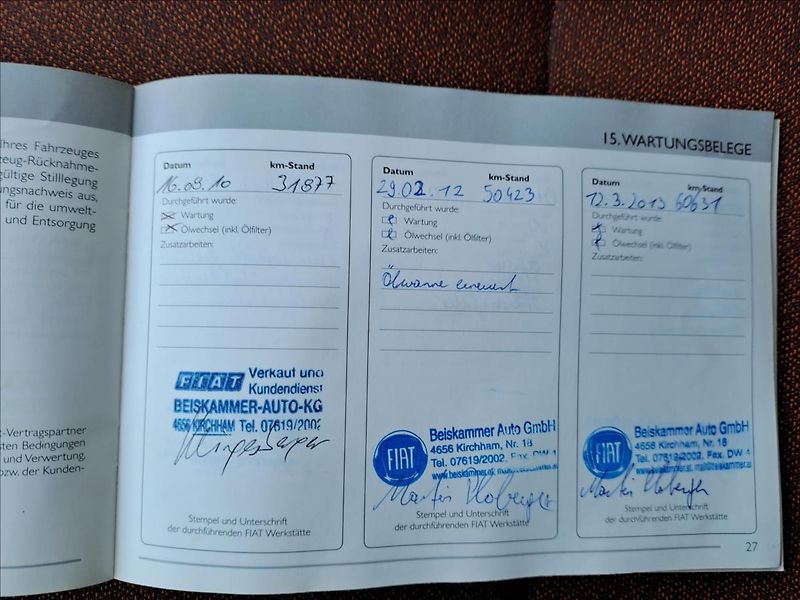 Ihres Fahrzeuges
zeug-Rücknahme-
gültige Stilllegung
ngsnachweis aus,
für die umwelt-
und Entsorgung
t-Vertragspartner
sten Bedingungen
und Verwertung,
bzw. der Kunden-
15. WARTUNGSBELEGE
Datum km-Stand
16.09.10 31877
Durchgeführt wurde:
Wartung
Ölwechsel (inkl. Ölfilter)
Zusatzarbeiten:
FIAT Verkauf und
Kundendienst
BEISKAMMER-AUTO-KG
4656 KIRCHHAM Tel. 07619/2002
Stempel und Unterschrift
der durchführenden FIAT Werkstätte
Datum km-Stand
29.02.12 50423
Durchgeführt wurde:
Wartung
Ölwechsel (inkl. Ölfilter)
Zusatzarbeiten:
Ölwanne erneuert
FIAT
Beiskammer Auto GmbH
4656 Kirchham, Nr. 18
Tel. 07619/2002, Fax. DW
www.beiskammer.at,
Stempel und Unterschrift
der durchführenden FIAT Werkstätte
Datum km-Stand
12.3.2013 60631
Durchgeführt wurde:
Wartung
Ölwechsel (inkl. Ölfilter)
Zusatzarbeiten:
FIAT
Beiskammer Auto GmbH
4656 Kirchham, Nr. 18
Tel. 07619/2002, Fax. DW 4
www.beiskammer.at, mail@beiskammer.at
Stempel und Unterschrift
der durchführenden FIAT Werkstätte
27